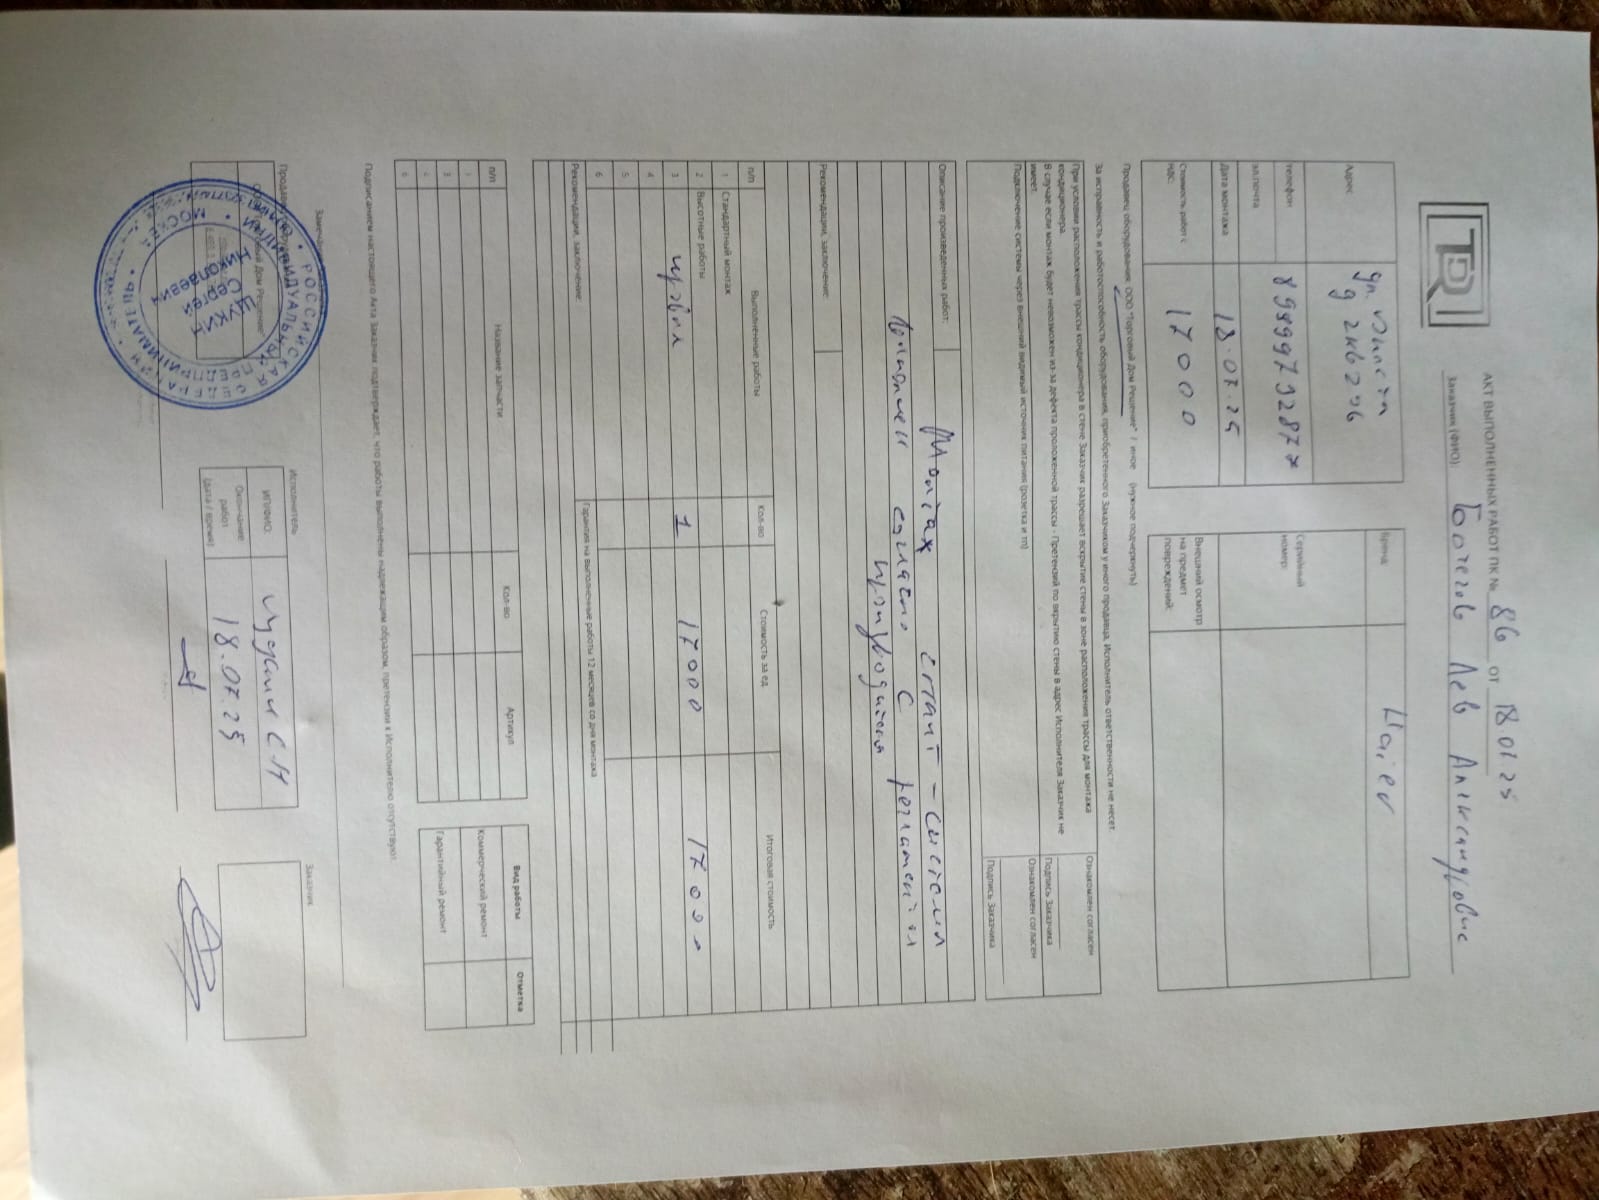 TDR
АКТ ВЫПОЛНЕННЫХ РАБОТ ПК № 86 от 18.07.25
Заказчик (ФИО): Лев Александрович
Адрес: ул.
д 2к6
телефон 89899793287
эл.почта
Дата монтажа 18.07.25
Стоимость работ с НДС: 17000
Бренд Haier
Серийный номер:
Внешний осмотр на предмет повреждений:
Продавец оборудования: ООО "Торговый Дом Решение" / иное (нужное подчеркнуть)
За исправность и работоспособность оборудования, приобретенного Заказчиком у иного продавца, Исполнитель ответственности не несет.
При условии расположения трассы кондиционера в стене Заказчик разрешает вскрытие стены в зоне расположения трассы для монтажа кондиционера.
Ознакомлен согласен
Подпись Заказчика
В случае если монтаж будет невозможен из-за дефекта проложенной трассы - Претензий по вкрытию стены в адрес Исполнителя Заказчик не имеет.
Подключение системы через внешний видимый источник питания (розетка и тп)
Ознакомлен согласен
Подпись Заказчика
Описание произведенных работ: Монтаж сплит-системы
выполнен согласно с регламентом
производителя
Рекомендации, заключение:
п/п Выполненные работы Кол-во Стоимость за ед Итоговая стоимость
1 Стандартный монтаж
2 Высотные работы
3 1 17000 17000
4
5
6
Рекомендации, заключение: Гарантия на выполненные работы 12 месяцев со дня монтажа
п/п Название запчасти Кол-во Артикул
1
3
4
6
Вид работы Отметка
Коммерческий ремонт
Гарантийный ремонт
Подписанием настоящего Акта Заказчик подтверждает, что работы выполнены надлежащим образом, претензии к Исполнителю отсутствуют.
Исполнитель
ИП/ФИО:
Окончание работ (дата / время) 18.07.25
Заказчик
РОССИЙСКАЯ ФЕДЕРАЦИЯ
ИНДИВИДУАЛЬНЫЙ ПРЕДПРИНИМАТЕЛЬ
МОСКВА
ЩУКИН
Сергей
Николаевич